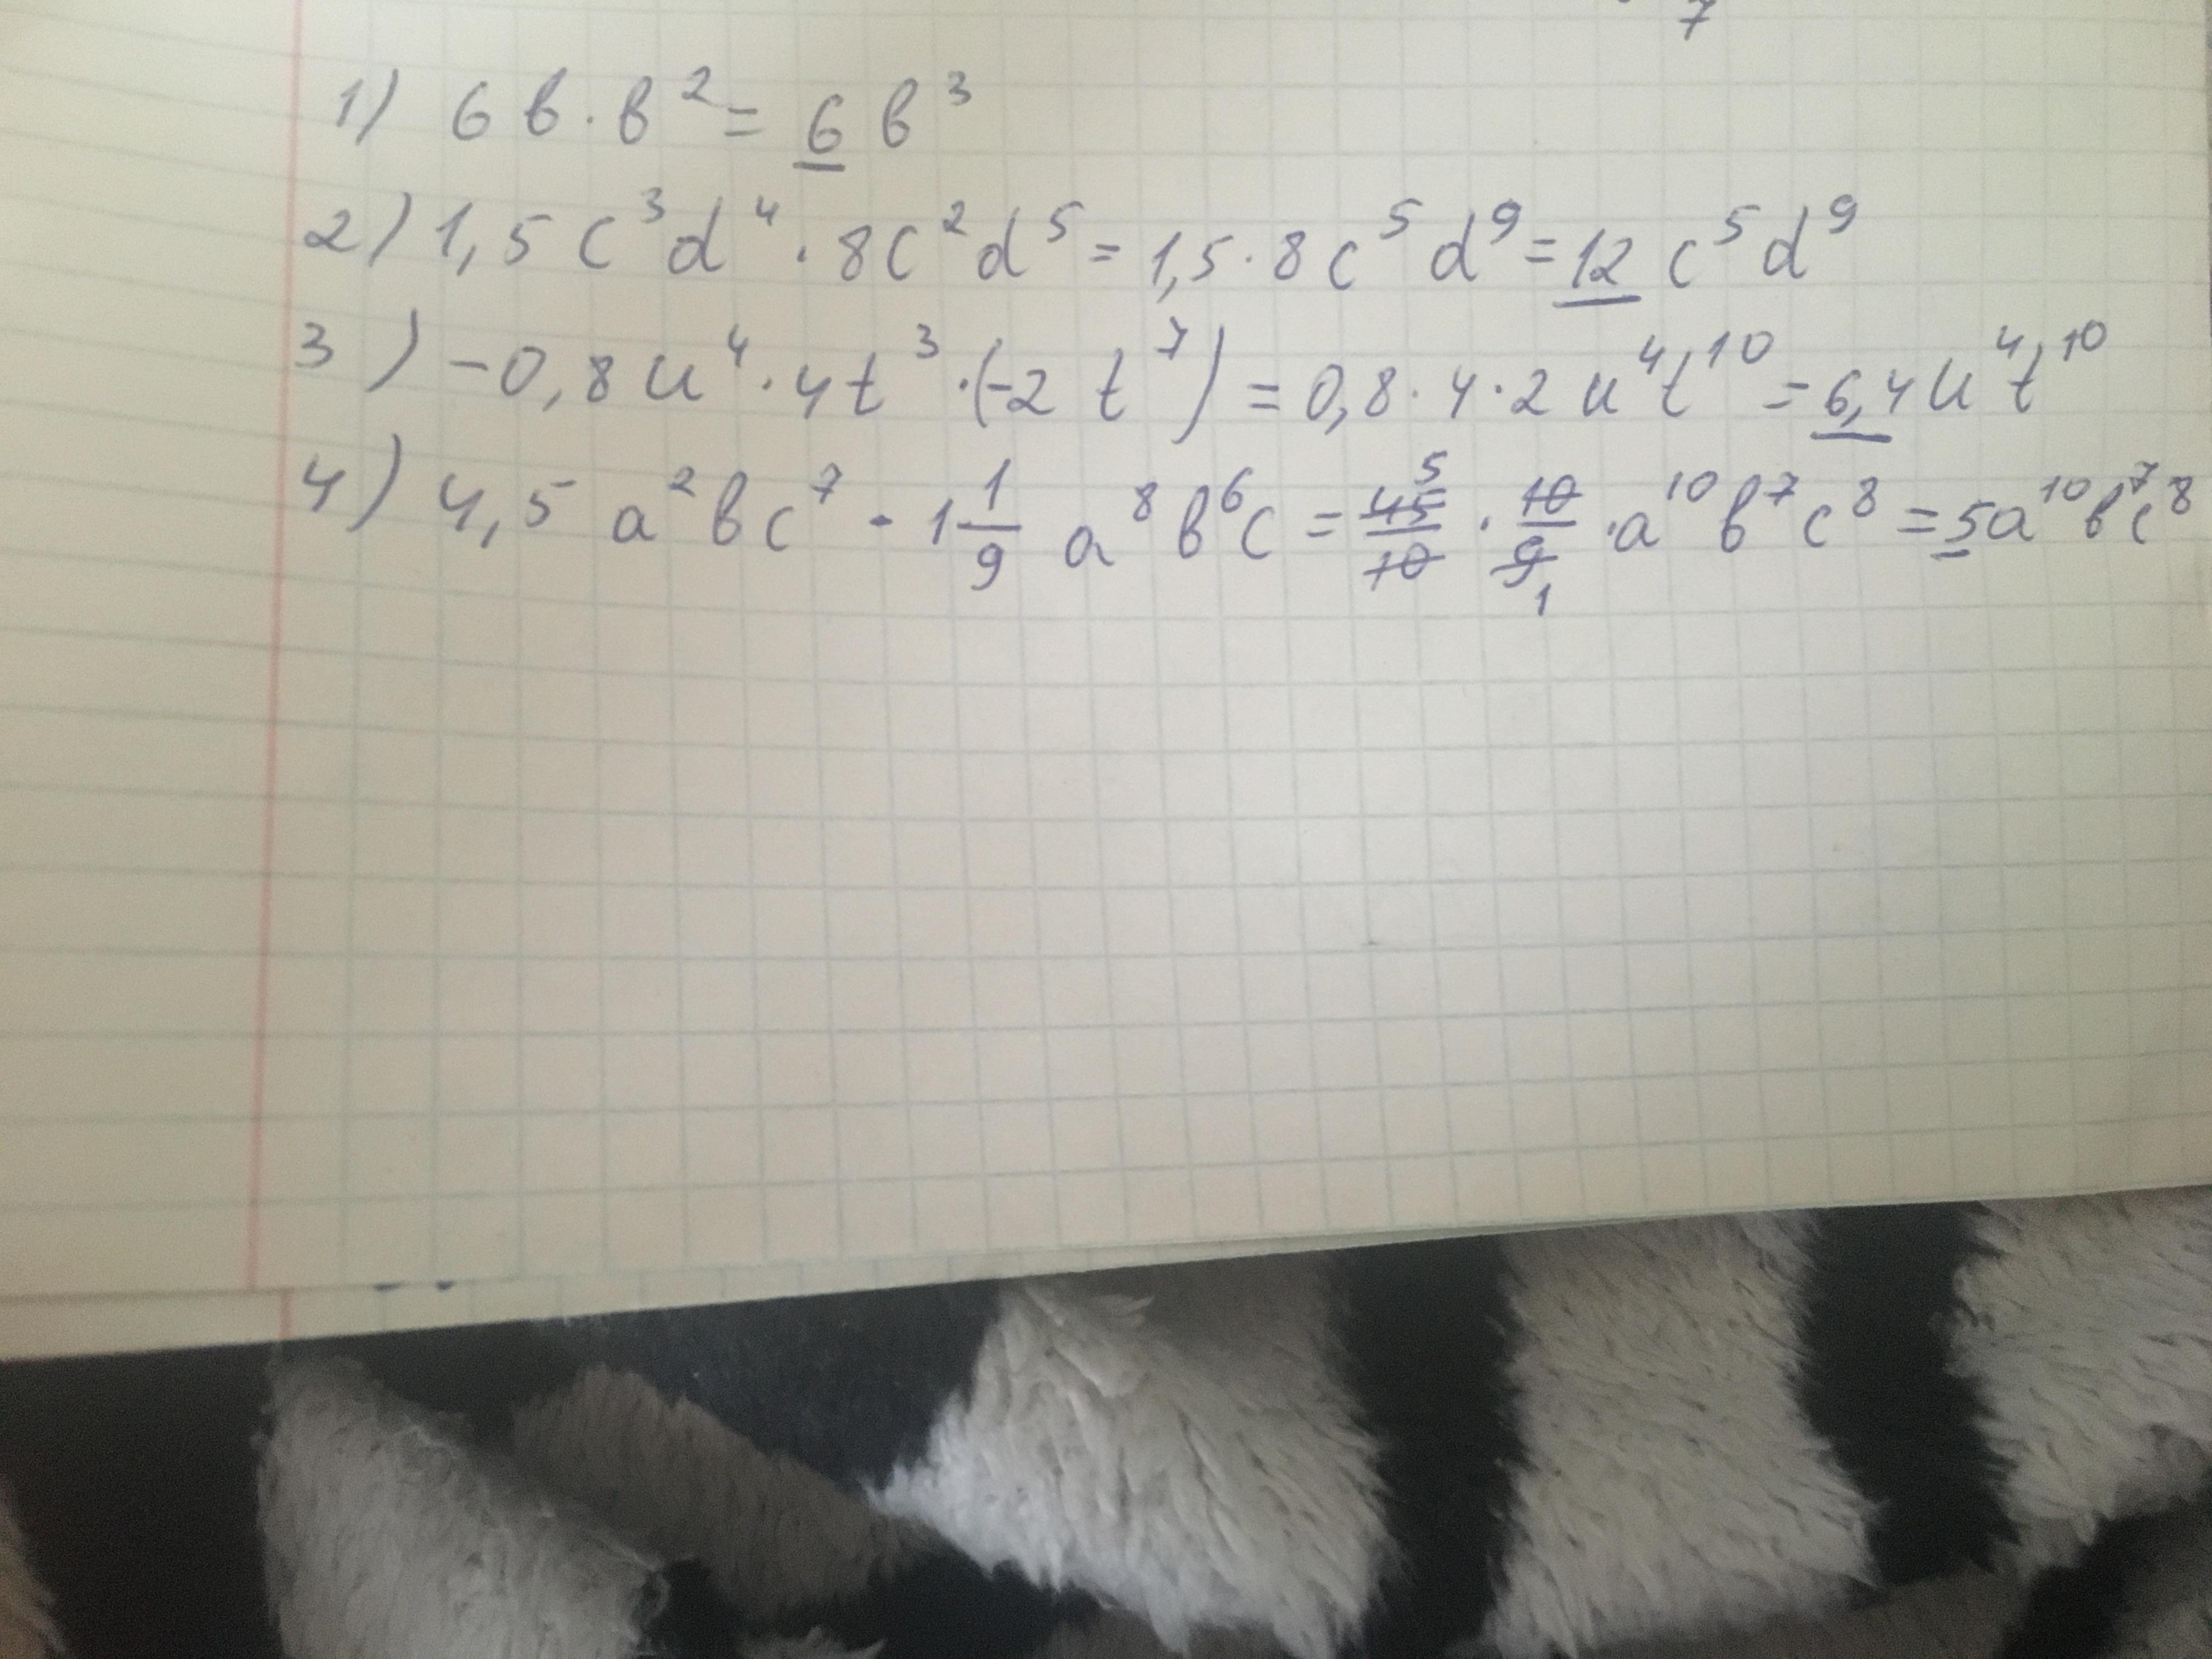 7
1) 6 в · в² = 6 в³
2) 1,5 c³d⁴ · 8c²d⁵ = 1,5 · 8 c⁵ d⁹ = 12 c⁵ d⁹
3) -0,8 u⁴ · 4t³ · (-2 t⁷) = 0,8 · 4 · 2 u⁴t¹⁰ = 6,4 u⁴t¹⁰
4) 4,5 a²вc⁷ · 1 1/9 a⁸в⁶c = 45/10 5 · 10/9 1 · a¹⁰в⁷c⁸ = 5a¹⁰в⁷c⁸